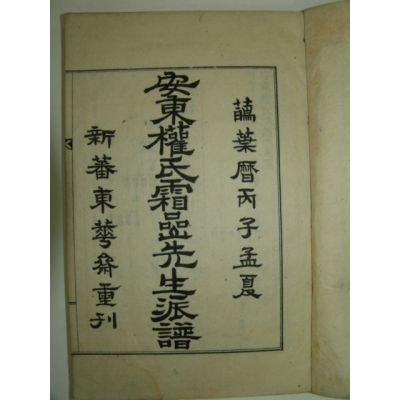 葉曆丙子孟夏
安東權氏霜嵒先生派譜
新蕃東華齋重刊